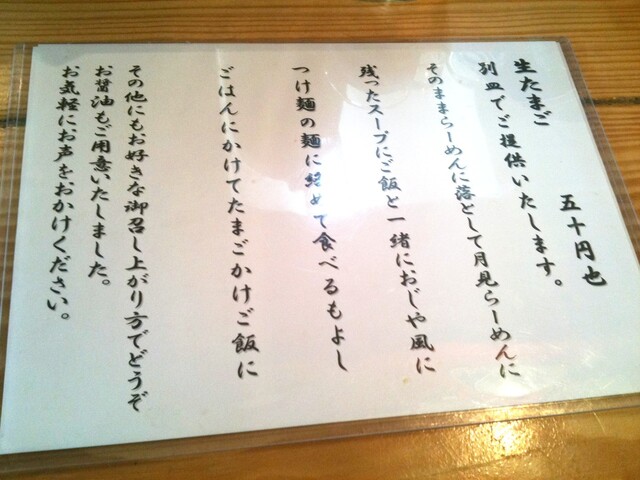 生たまご　五十円也
別皿でご提供いたします。
そのままらーめんに落として月見らーめんに
残ったスープにご飯と一緒におじや風に
つけ麺の麺に絡めて食べるもよし
ごはんにかけてたまごかけご飯に
その他にもお好きな御召し上がり方でどうぞ
お醤油もご用意いたしました。
お気軽にお声をおかけください。